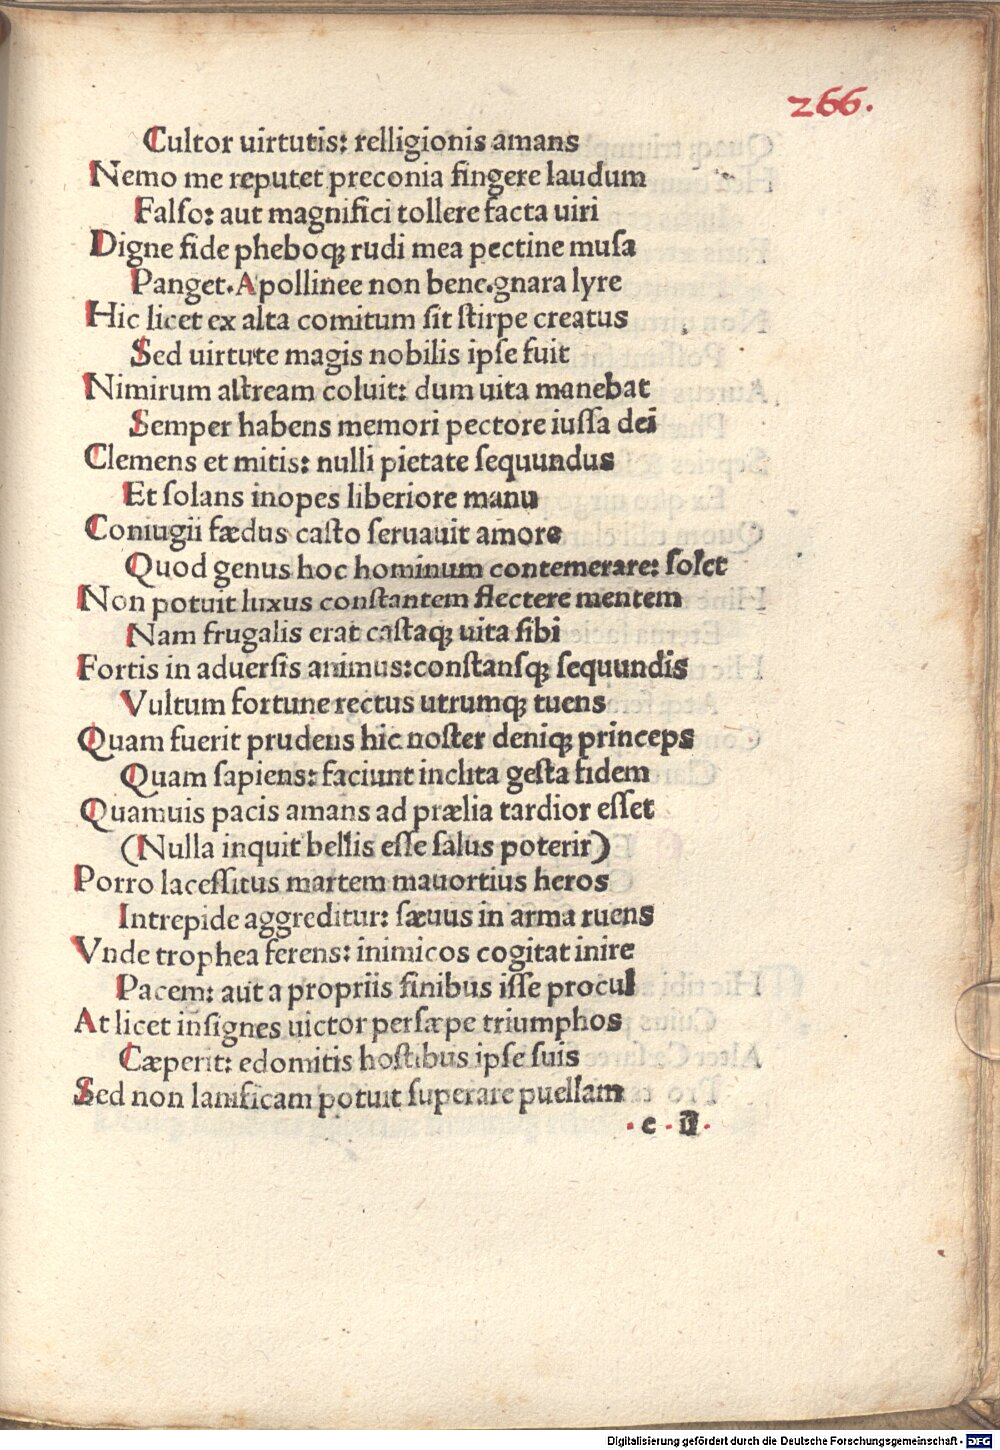 266.
Cultor uirtutis: relligionis amans
Nemo me reputet preconia fingere laudum
Falſo: aut magnifici tollere facta uiri
Digne fide pheboqꝫ rudi mea pectine muſa
Panget. Apollinee non bene.gnara lyre
Hic licet ex alta comitum ſit ſtirpe creatus
Sed uirtute magis nobilis ipſe fuit
Nimirum aſtream coluit: dum uita manebat
Semper habens memori pectore iuſſa dei
Clemens et mitis: nulli pietate ſequundus
Et ſolans inopes liberiore manu
Coniugii fædus caſto ſeruauit amore
Quod genus hoc hominum contemerare: ſolet
Non potuit luxus conſtantem flectere mentem
Nam frugalis erat caſtaqꝫ uita ſibi
Fortis in aduerſis animus: conſtanſqꝫ ſequundis
Vultum fortune rectus utrumqꝫ tuens
Quam fuerit prudens hic noſter deniqꝫ princeps
Quam ſapiens: faciunt inclita geſta fidem
Quamuis pacis amans ad prælia tardior eſſet
(Nulla inquit bellis eſſe ſalus poterir)
Porro laceſſitus martem mauortius heros
Intrepide aggreditur: ſæuus in arma ruens
Vnde trophea ferens: inimicos cogitat inire
Pacem: aut a propriis finibus iſſe procul
At licet inſignes uictor perſæpe triumphos
Cæperit: edomitis hoſtibus ipſe ſuis
Sed non lanificam potuit ſuperare puellam
. e . ii .
Digitalisierung gefördert durch die Deutsche Forschungsgemeinschaft - DFG